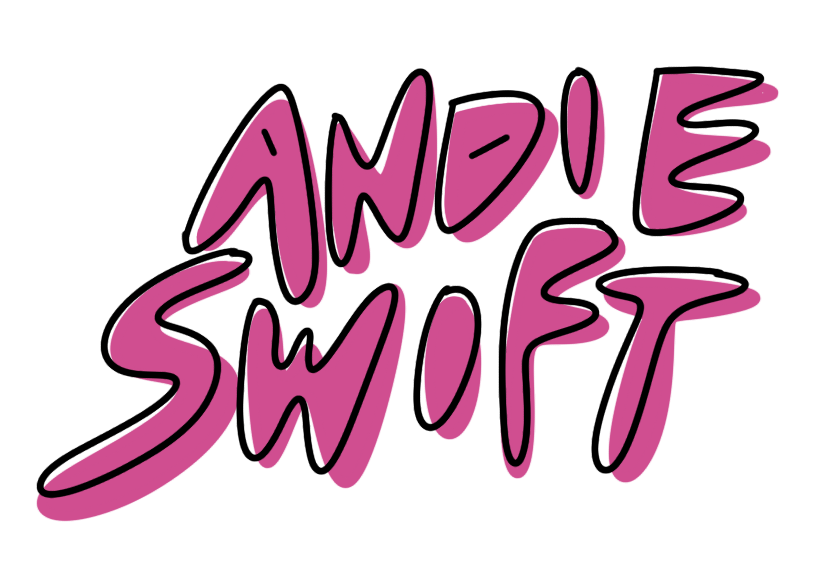 ANDIE
SWIFT